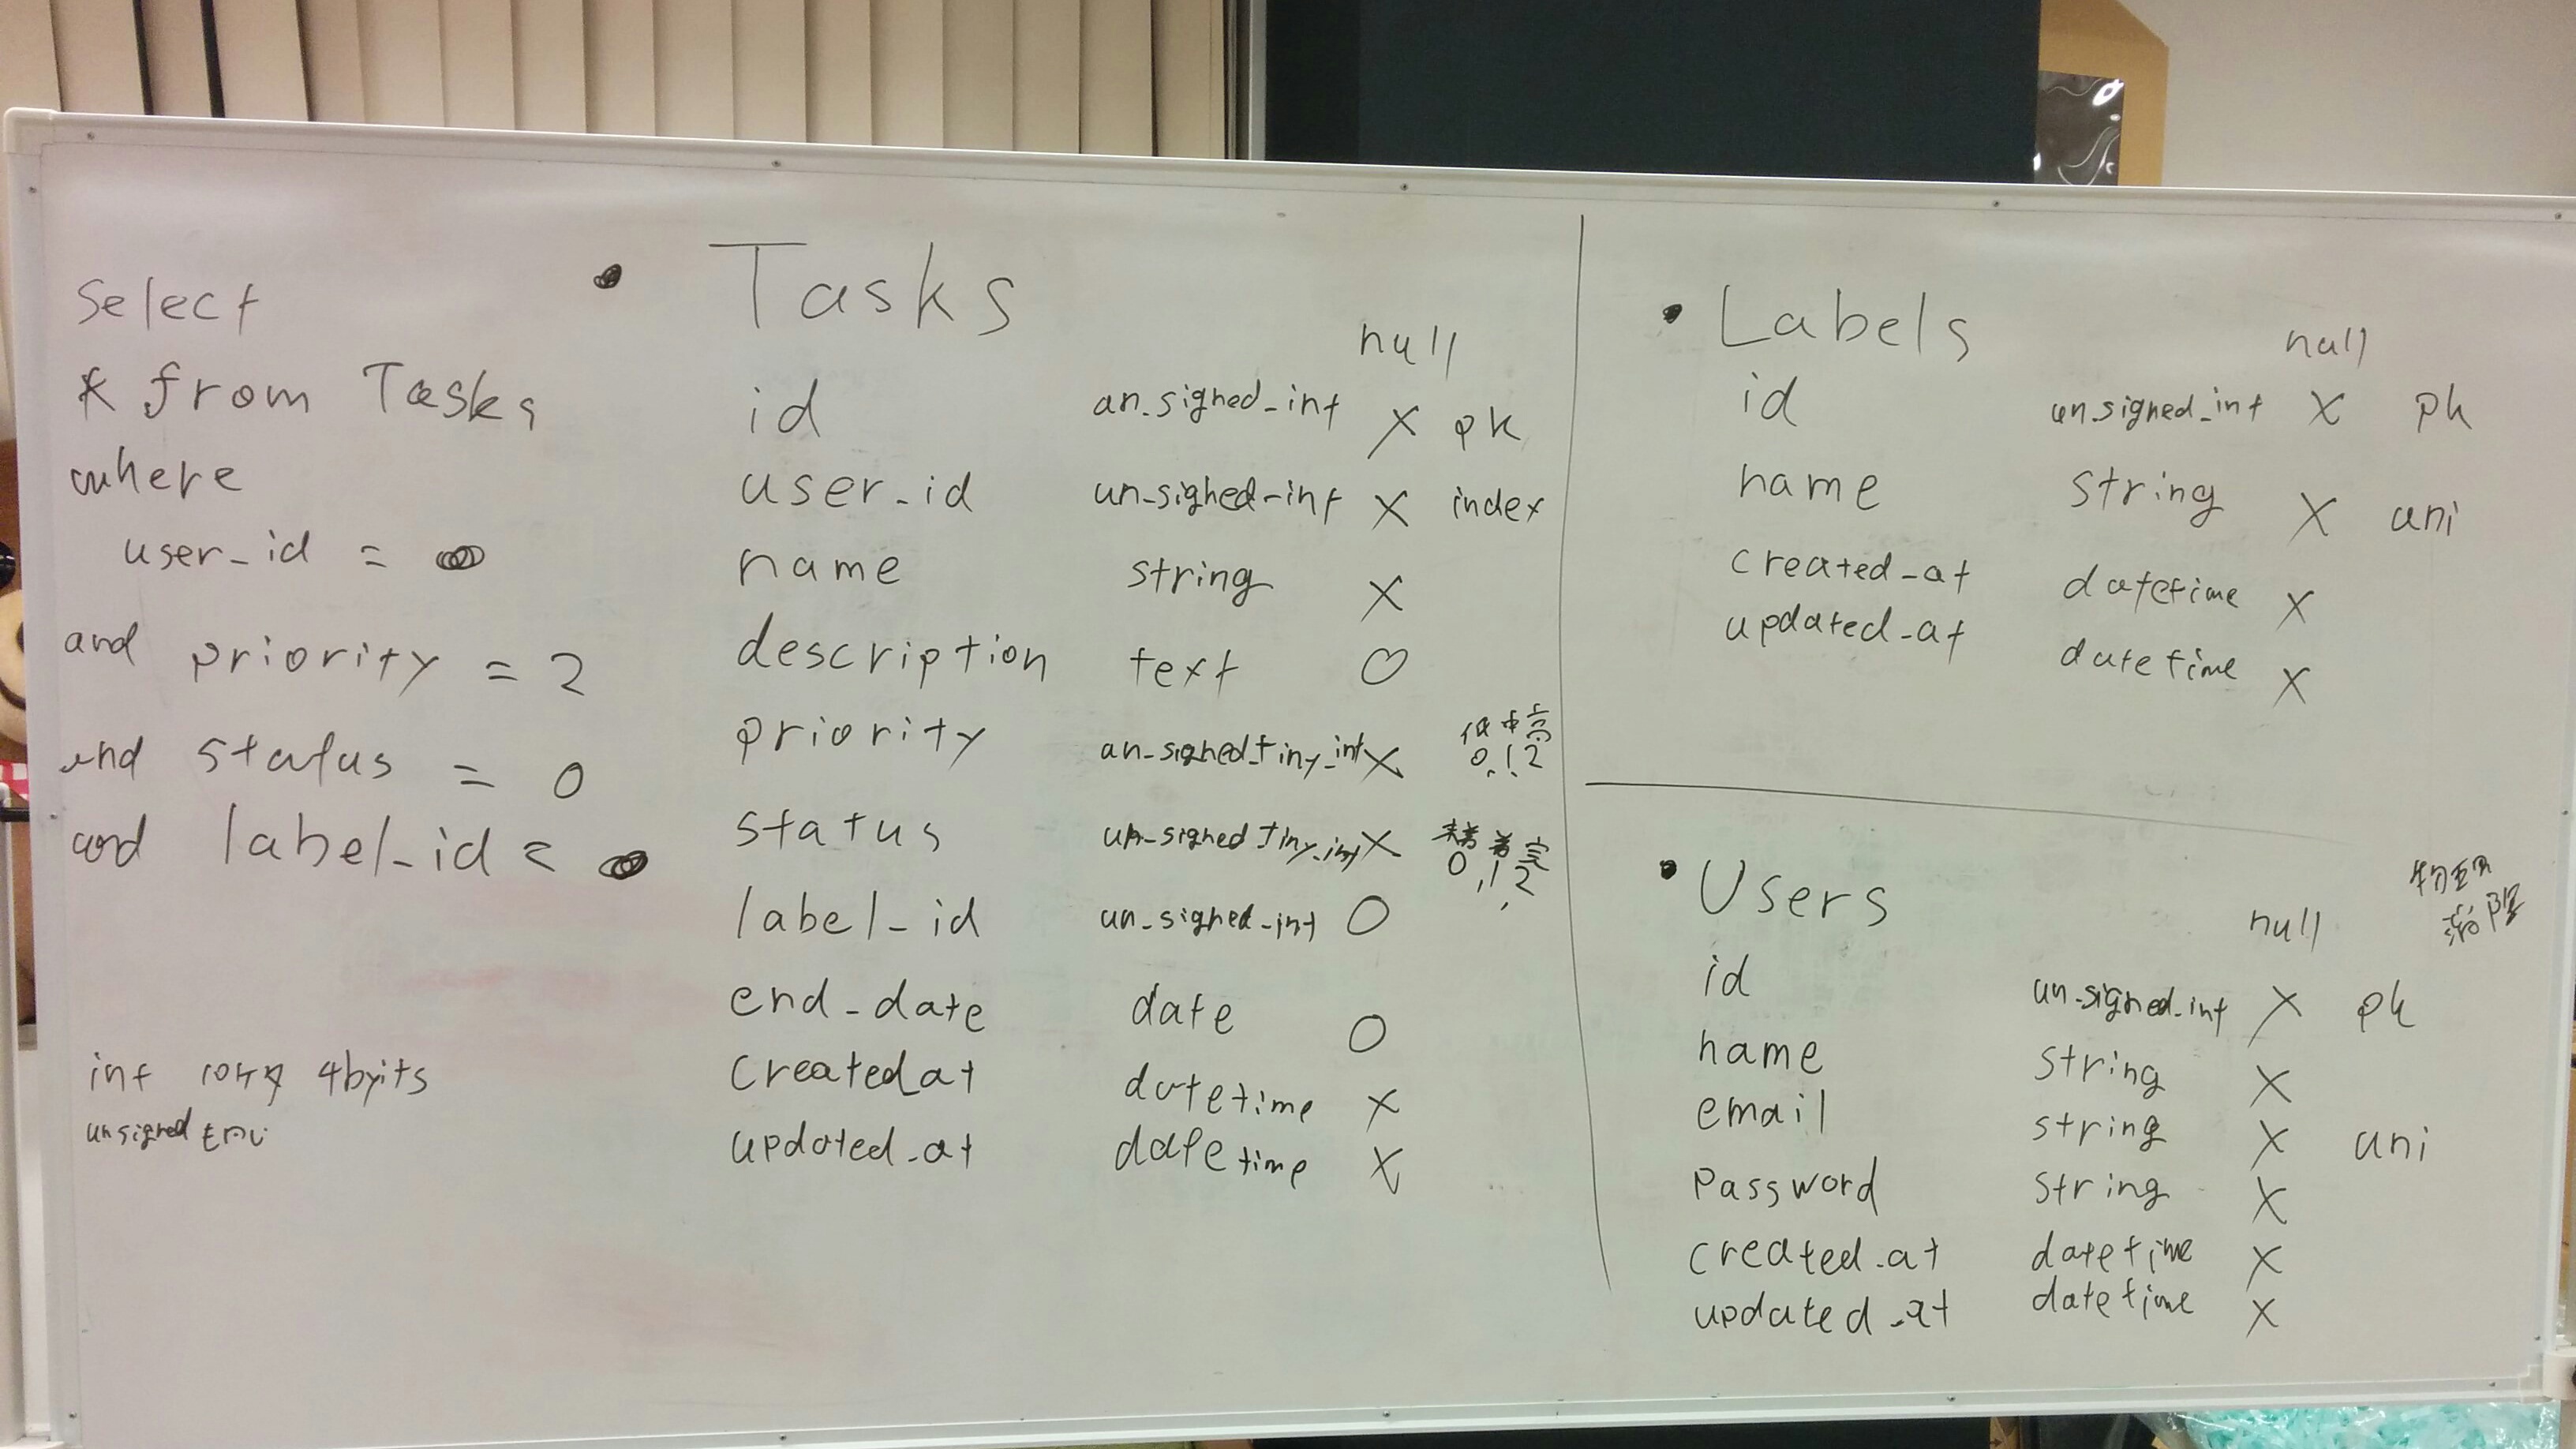 select
* from Tasks
where
user_id =
and priority = 2
and status = 0
and label_id =
int 10ケタ 4byits
unsigned
• Tasks
null
id un_signed_int × pk
user_id un_signed_int × index
name string ×
description text ○
低 中 高
priority un_signed_tiny_int × 0, 1, 2
未着 着 完
status un_signed_tiny_int × 0, 1, 2
label_id un_signed_int ○
end_date date ○
created_at datetime ×
updated_at datetime ×
• Labels
null
id un_signed_int × pk
name string × uni
created_at datetime ×
updated_at datetime ×
物理
• Users
null
id un_signed_int × pk
name string ×
email string × uni
password string ×
created_at datetime ×
updated_at datetime ×